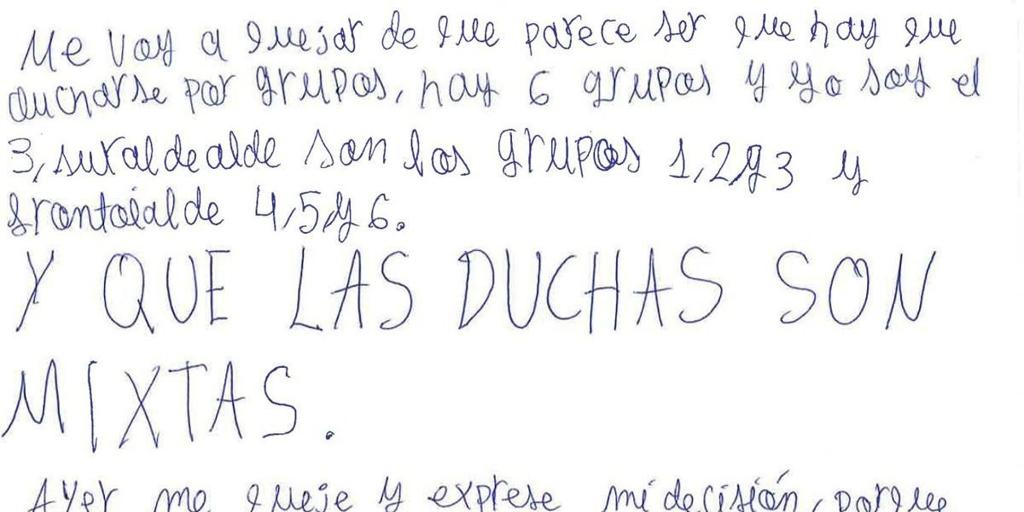 Me voy a quejar de que parece ser que hay que
ducharse por grupos, hay 6 grupos y yo soy el
3, suraldealde son los grupos 1,2y3 y
frontoialde 4,5,y6.
Y QUE LAS DUCHAS SON
MIXTAS.
Ayer me queje y exprese mi decisión, porque